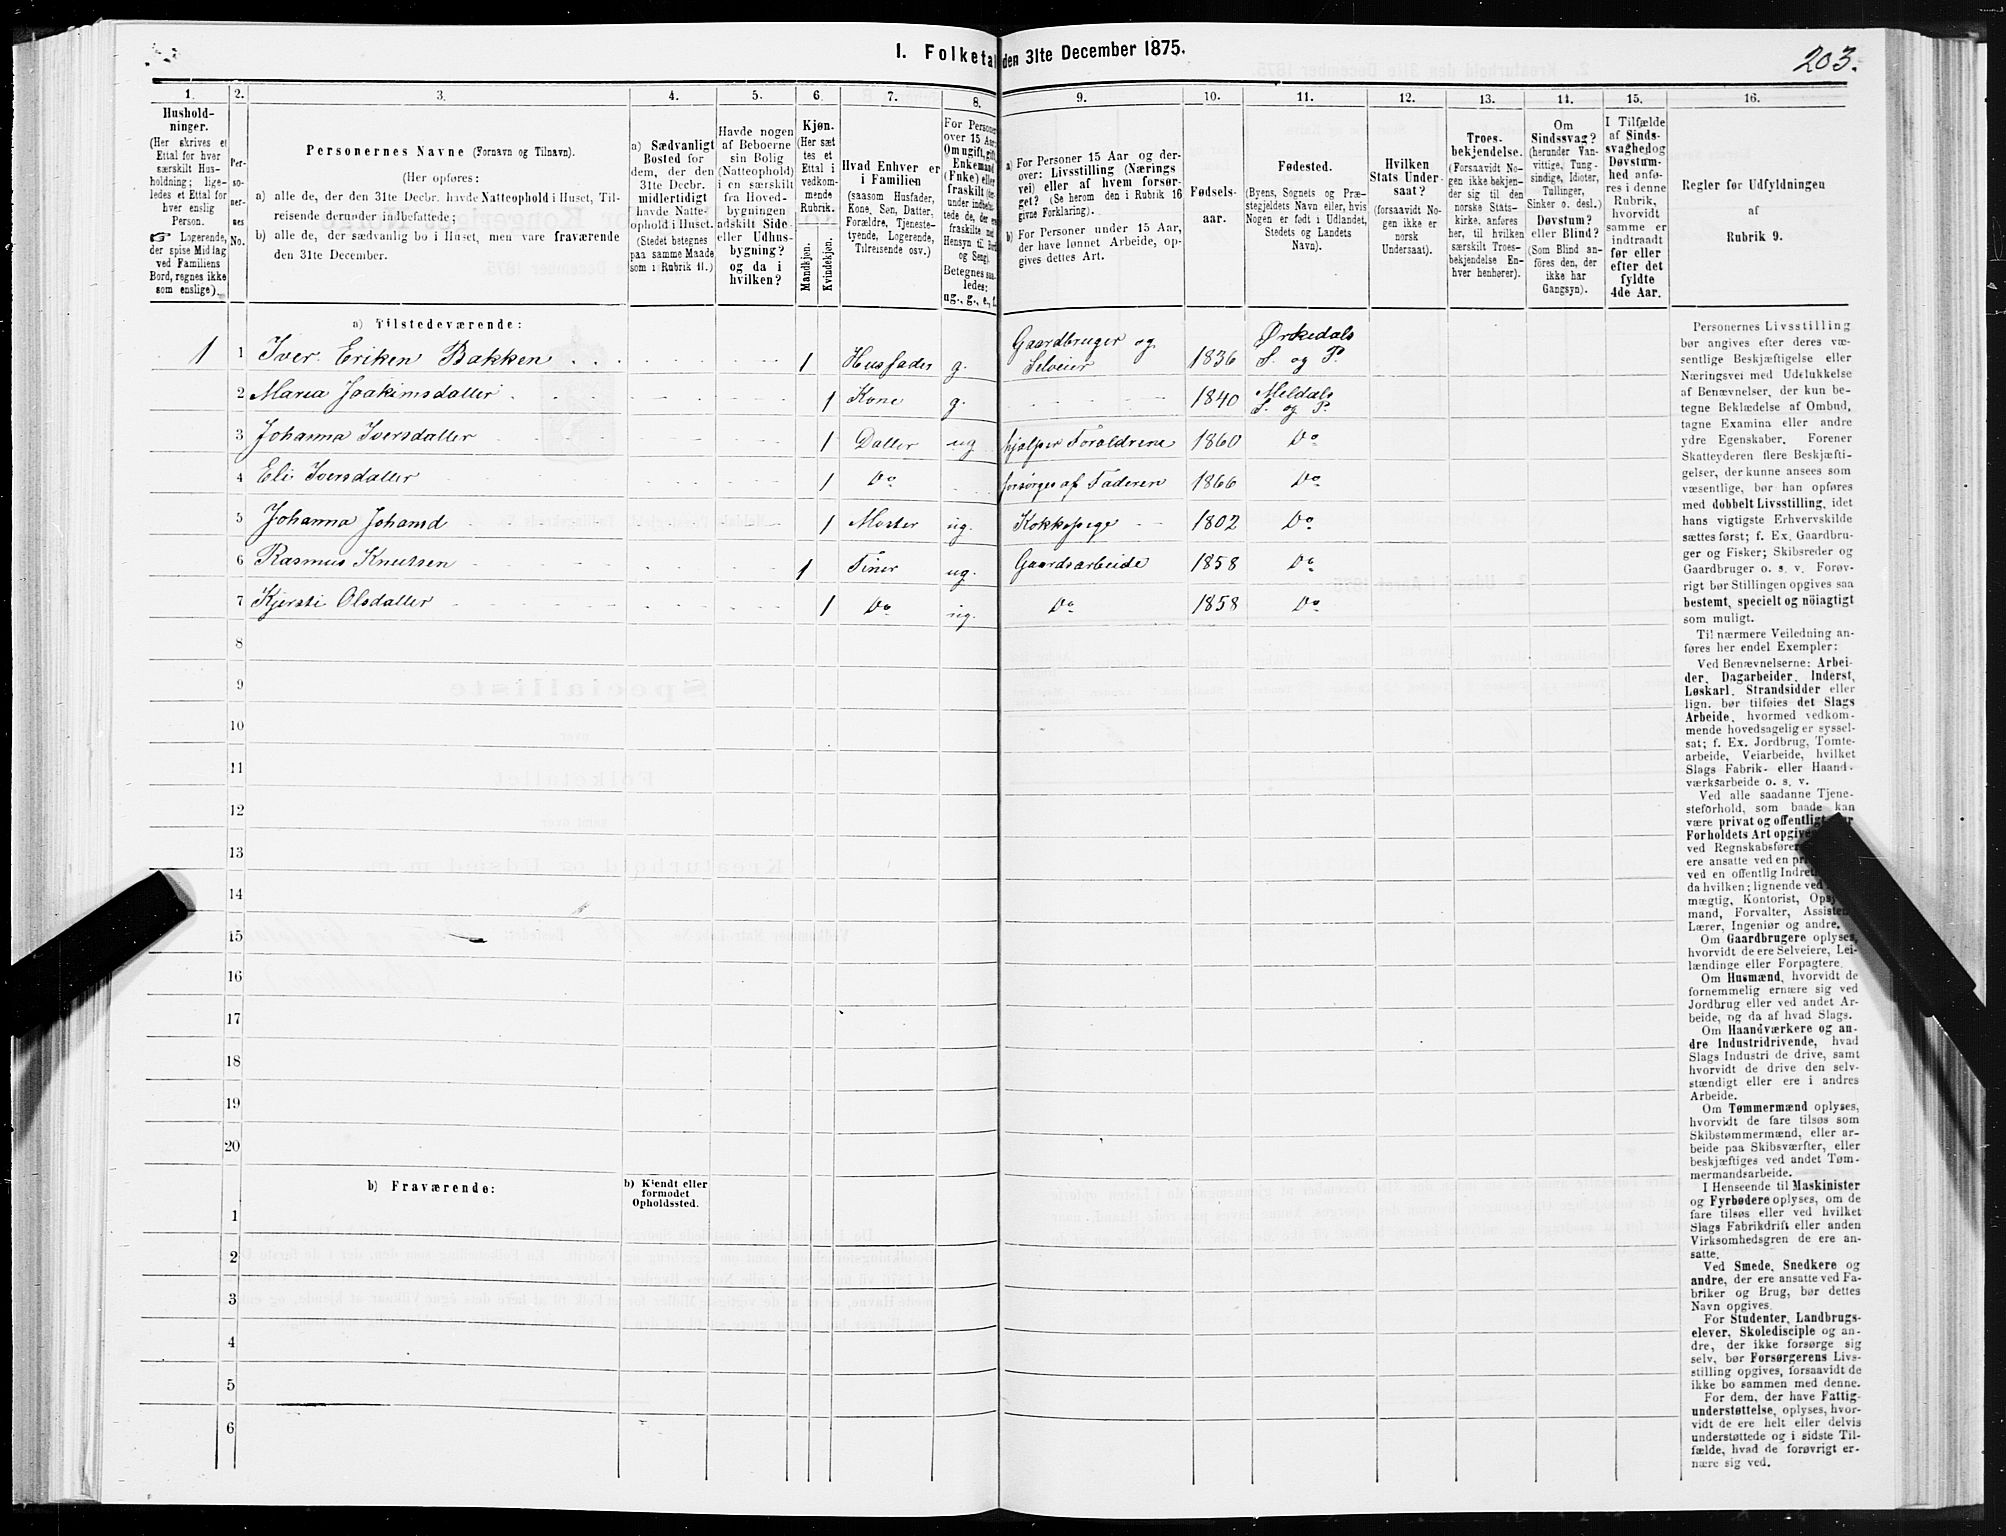 I. Folketal den 31te December 1875.
203.
1. 2. 3. 4. 5. 6. 7. 8. 9. 10. 11. 12. 13. 14. 15. 16.
Hushold-
ninger.
(Her skrives et
Ettal for hver
særskilt Hus-
holdning; lige-
ledes et Ettal for
hver enslig
Person.
☞ Logerende,
der spise Middag
ved Familiens
Bord, regnes ikke
som enslige).
Per-
so-
ner-
nes
No.
Personernes Navne (Fornavn og Tilnavn).
(Her opføres:
a) alle de, der den 31te Decbr. havde Natteophold i Huset, Til-
reisende derunder indbefattede;
b) alle de, der sædvanlig bo i Huset, men vare fraværende
den 31te December.
a) Sædvanligt
Bosted for
dem, der den
31te Decbr.
midlertidigt
havde Natte-
ophold i Huset.
(Stedet betegnes
paa samme Maade
som i Rubrik 11.)
Havde nogen
af Beboerne
sin Bolig
(Natteophold)
i en særskilt
fra Hoved-
bygningen
adskilt Side-
eller Udhus-
bygning?
og da i
hvilken?
Kjøn.
(Her sæt-
tes et
Ettal i
vedkom-
mende
Rubrik.
Mandkjøn.
Kvindekjøn.
Hvad Enhver er
i Familien
(saasom Husfader,
Kone, Søn, Datter,
Forældre, Tjeneste-
tyende, Logerende,
Tilreisende osv.)
For Personer
over 15 Aar:
Om ugift, gift,
Enkemand
(Enke) eller
fraskilt
Betegnes saa-
ledes:
ug., g., e., f.
a) For Personer 15 Aar og der-
over: Livsstilling (Nærings
vei) eller af hvem forsør-
get? (Se herom den i Rubrik 16
givne Forklaring).
b) For Personer under 15 Aar,
der have lønnet Arbeide, op-
gives dettes Art.
Fødsels-
aar.
Fødested.
(Byens, Sognets og Præ-
stegjeldets Navn eller, hvis
Nogen er født i Udlandet,
Stedets og Landets
Navn).
Hvilken
Stats Under-
saat?
(forsaavidt No-
gen ikke er
norsk
Undersaat).
Troes-
bekjendelse.
(Forsaavidt No-
gen ikke bekjen-
der sig til den
norske Stats-
kirke, anføres
her, til hvilken
særskilt Troes-
bekjendelse En-
hver henhører).
Om
Sindssvag?
(herunder Van-
vittige, Tung-
sindige, Idioter,
Tullinger,
Sinker o. desl.)
Døvstum?
eller Blind?
(Som Blind an-
føres den, der
ikke har
Gangsyn).
I Tilfælde
af Sinds-
svaghed og
Døvstum-
hed anfø-
res i denne
Rubrik,
hvorvidt
samme er
indtraadt
før eller
efter det
fyldte
4de Aar.
Regler for Udfyldningen
af
Rubrik 9.
a) Tilstedeværende:
1 1 Iver Eriken Bakken 1 Husfader g. Gaardbruger og Selveier 1836 Ørkedals S. og P.
2 Maria Joakimsdatter 1 Kone g. 1840 Meldals S. og P.
3 Johanna Iversdatter 1 Datter ug. hjælper Forældrene 1860 Do
4 Eli Iversdatter 1 Do forsørges af Faderen 1866 Do
5 Johanna Johansd 1 Moster ug. Kokkepige 1802 Do
6 Rasmus Knutsen 1 Tiner ug. Gaardsarbeide 1858 Do
7 Kjersti Olsdatter 1 Do ug. Do 1858 Do
8
9
10
11
12
13
14
15
16
17
18
19
20
b) Fraværende:
b) Kjendt eller
formodet
Opholdssted.
1
2
3
4
5
6
Personernes Livsstilling
bør angives efter deres væ-
sentlige Beskjæftigelse eller
Næringsvei med Udelukkelse
af Benævnelser, der kun be-
tegne Beklædelse af Ombud,
tagne Examina eller andre
ydre Egenskaber. Forener
Skatteyderen flere Beskjæfti-
gelser, der kunne ansees som
væsentlige, bør han opføres
med dobbelt Livsstilling, idet
hans vigtigste Erhvervskilde
sættes først; f. Ex. Gaardbru-
ger og Fisker; Skibsreder og
Gaardbruger o. s. v. Forøv-
rigt bør Stillingen opgives saa
bestemt, specielt og nöiagtigt
som muligt.
Til nærmere Veiledning an-
føres her endel Exempler:
Ved Benævnelserne: Arbei-
der, Dagarbeider, Inderst,
Løskarl, Strandsidder eller
lign. bør tilføies det Slags
Arbeide, hvormed vedkom-
mende hovedsagelig er syssel-
sat; f. Ex. Jordbrug, Tomte-
arbeide, Veiarbeide, hvilket
Slags Fabrik- eller Haand-
værksarbeide o. s. v.
Ved alle saadanne Tjene-
steforhold, som baade kan
være privat og offentligt,
Forholdets Art opgives
ved Regnskabsfører
ere ansatte ved en
ved en offentlig
da hvilken; lignende ved
mægtig, Kontorist,
mand, Forvalter,
Lærer, Ingeniør og andre.
Om Gaardbrugere oplyses,
hvorvidt de ere Selveiere, Lei-
lændinge eller Forpagtere.
Om Husmænd, hvorvidt de
fornemmelig ernære sig ved
Jordbrug eller ved andet Ar-
beide, og da af hvad Slags.
Om Haandværkere og an-
dre Industridrivende, hvad
Slags Industri de drive, samt
hvorvidt de drive den selv-
stændigt eller ere i andres
Arbeide.
Om Tømmermænd oplyses,
hvorvidt de fare tilsøs som
Skibstømmermænd, eller ar-
beide paa Skibsværfter, eller
beskjæftiges ved andet Tøm-
mermandsarbeide.
I Henseende til Maskinister
og Fyrbødere oplyses, om de
fare tilsøs eller ved hvilket
Slags Fabrikdrift eller anden
Virksomhedsgren de ere an-
satte.
Ved Smede, Snedkere og
andre, der ere ansatte ved Fa-
briker og Brug, bør dettes
Navn opgives.
For Studenter, Landbrugs-
elever, Skoledisciple og an-
dre, der ikke forsørge sig
selv, bør Forsørgerens Livs-
stilling opgives, forsaavidt de
ikke bo sammen med denne.
For dem, der have Fattig-
understøttelse, oplyses, hvor-
vidt de ere helt eller delvis
understøttede og i sidste Til-
fælde, hvad de forøvrigt er-
nære sig ved.